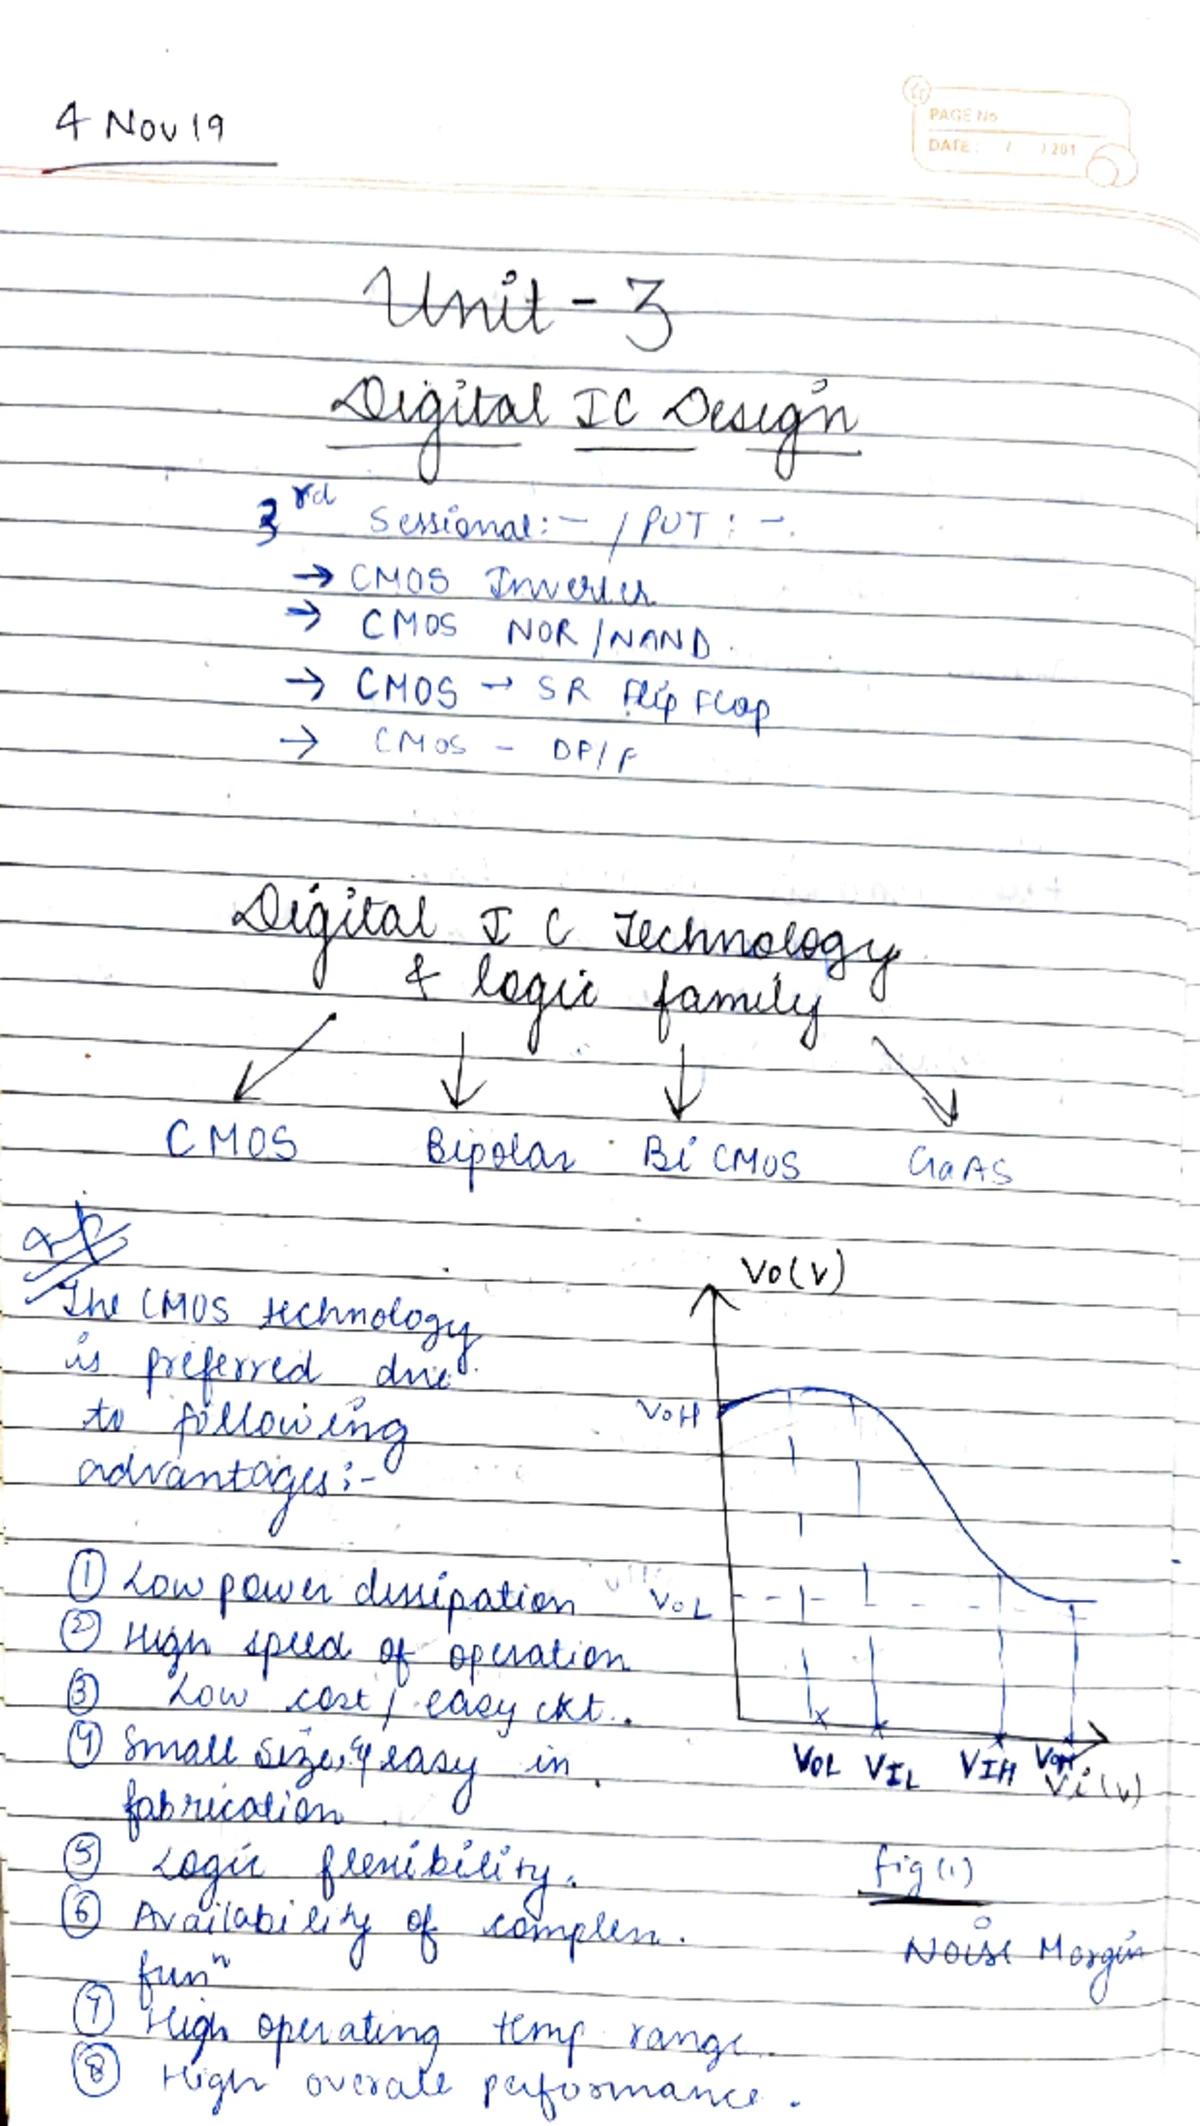 4 Nov 19
PAGE No
DATE: / /201
Unit - 3
Digital IC Design
3rd Sessional:- / PUT:-
→ CMOS Inverter
→ CMOS NOR/NAND.
→ CMOS → SR Flip Flop
→ CMOS - DF/F
Digital IC Technology
& logic family
CMOS Bipolar BiCMOS GaAS
The CMOS technology
is preferred due
to following
advantages:-
① Low power dissipation
② High speed of operation
③ Low cost / easy ckt.
④ Small size, & easy in
fabrication
⑤ Logic flexibility.
⑥ Availability of complex.
funⁿ
⑦ High operating temp range.
⑧ High overall performance.
Vo(V)
VOH
VOL
VOL VIL VIH VOH
Vi(V)
fig(1)
Noise Margin